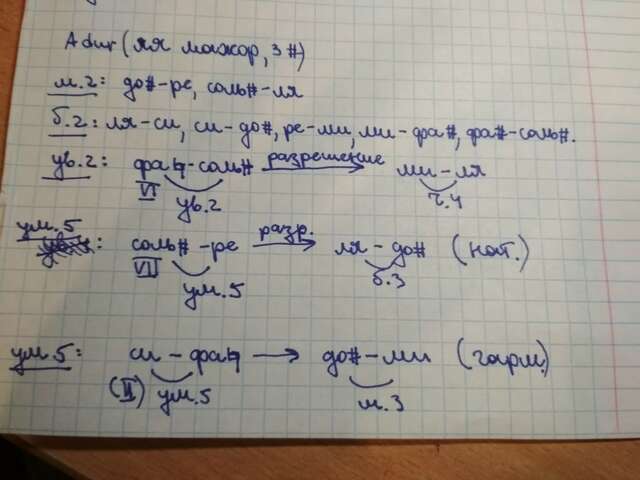 A dur (ля мажор, 3#)
м.2: до#-ре, соль#-ля
б.2: ля-си, си-до#, ре-ми, ми-фа#, фа#-соль#.
ув.2: фа♮-соль# разрешение ми-ля
VI ув.2 ч.4
ум.5: соль#-ре разр. ля-до# (нат.)
VII ум.5 б.3
ум.5: си-фа♮ → до#-ми (гарм.)
(II) ум.5 м.3